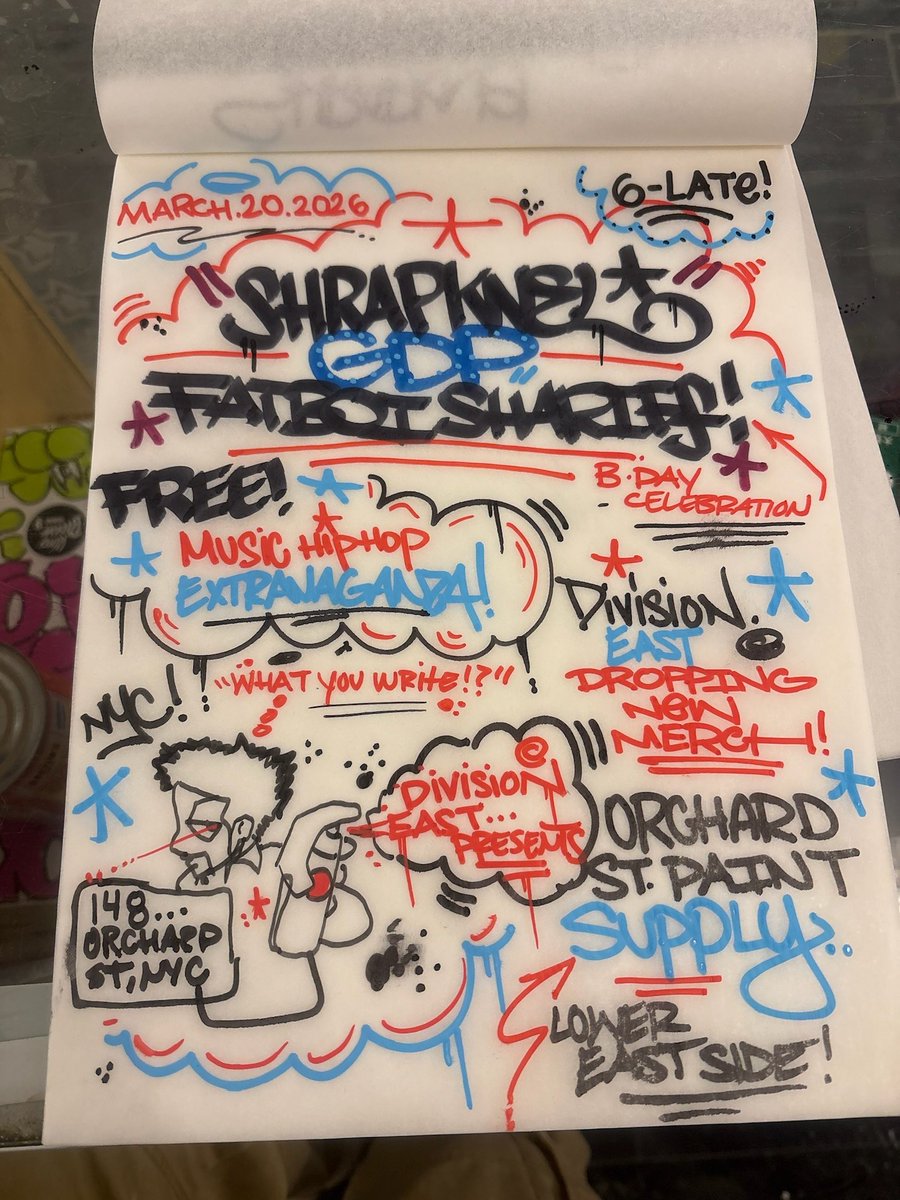 MARCH.20.2026
6-LATE!
"SHRAPKNEL"
GDP
FATBOI SHARIF!
B-DAY
CELEBRATION
FREE!
MUSIC HIPHOP
EXTRAVAGANZA!
DIVISION.
EAST
DROPPING
NEW
MERCH!
"WHAT YOU WRITE!?"
NYC!
DIVISION
EAST...
PRESENTS
ORCHARD
ST. PAINT
SUPPLY..
148...
ORCHARD
ST, NYC
LOWER
EAST SIDE!